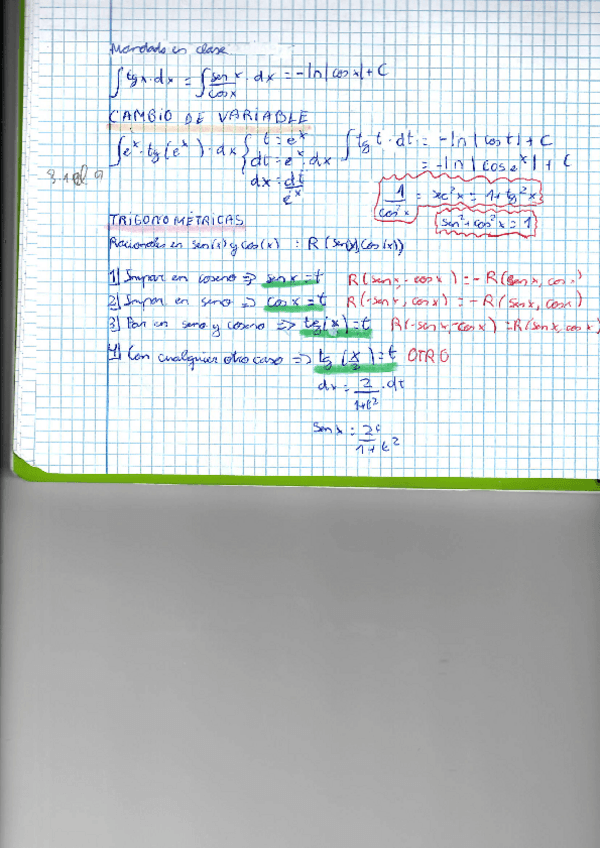 Mandado en clase
∫tg x · dx = ∫ sen x / cos x · dx = -ln|cos x| + C
CAMBIO DE VARIABLE
∫e^x · tg(e^x) · dx { t = e^x ∫tg t · dt = -ln|cos t| + C
dt = e^x · dx = -ln|cos e^x| + C
dx = dt / e^x
1 / cos²x = sec²x = 1 + tg²x
sen² + cos²x = 1
TRIGONOMÉTRICAS
Racionales en sen(x) y cos(x) : R(sen(x), cos(x))
1] Impar en coseno => sen x = t R(sen x, -cos x) = -R(sen x, cos x)
2] Impar en seno => cos x = t R(-sen x, cos x) = -R(sen x, cos x)
3] Par en seno y coseno => tg(x) = t R(-sen x, -cos x) = R(sen x, cos x)
4] Con cualquier otro caso => tg(x/2) = t OTRO
dx = 2 / 1+t² · dt
sen x = 2t / 1+t²